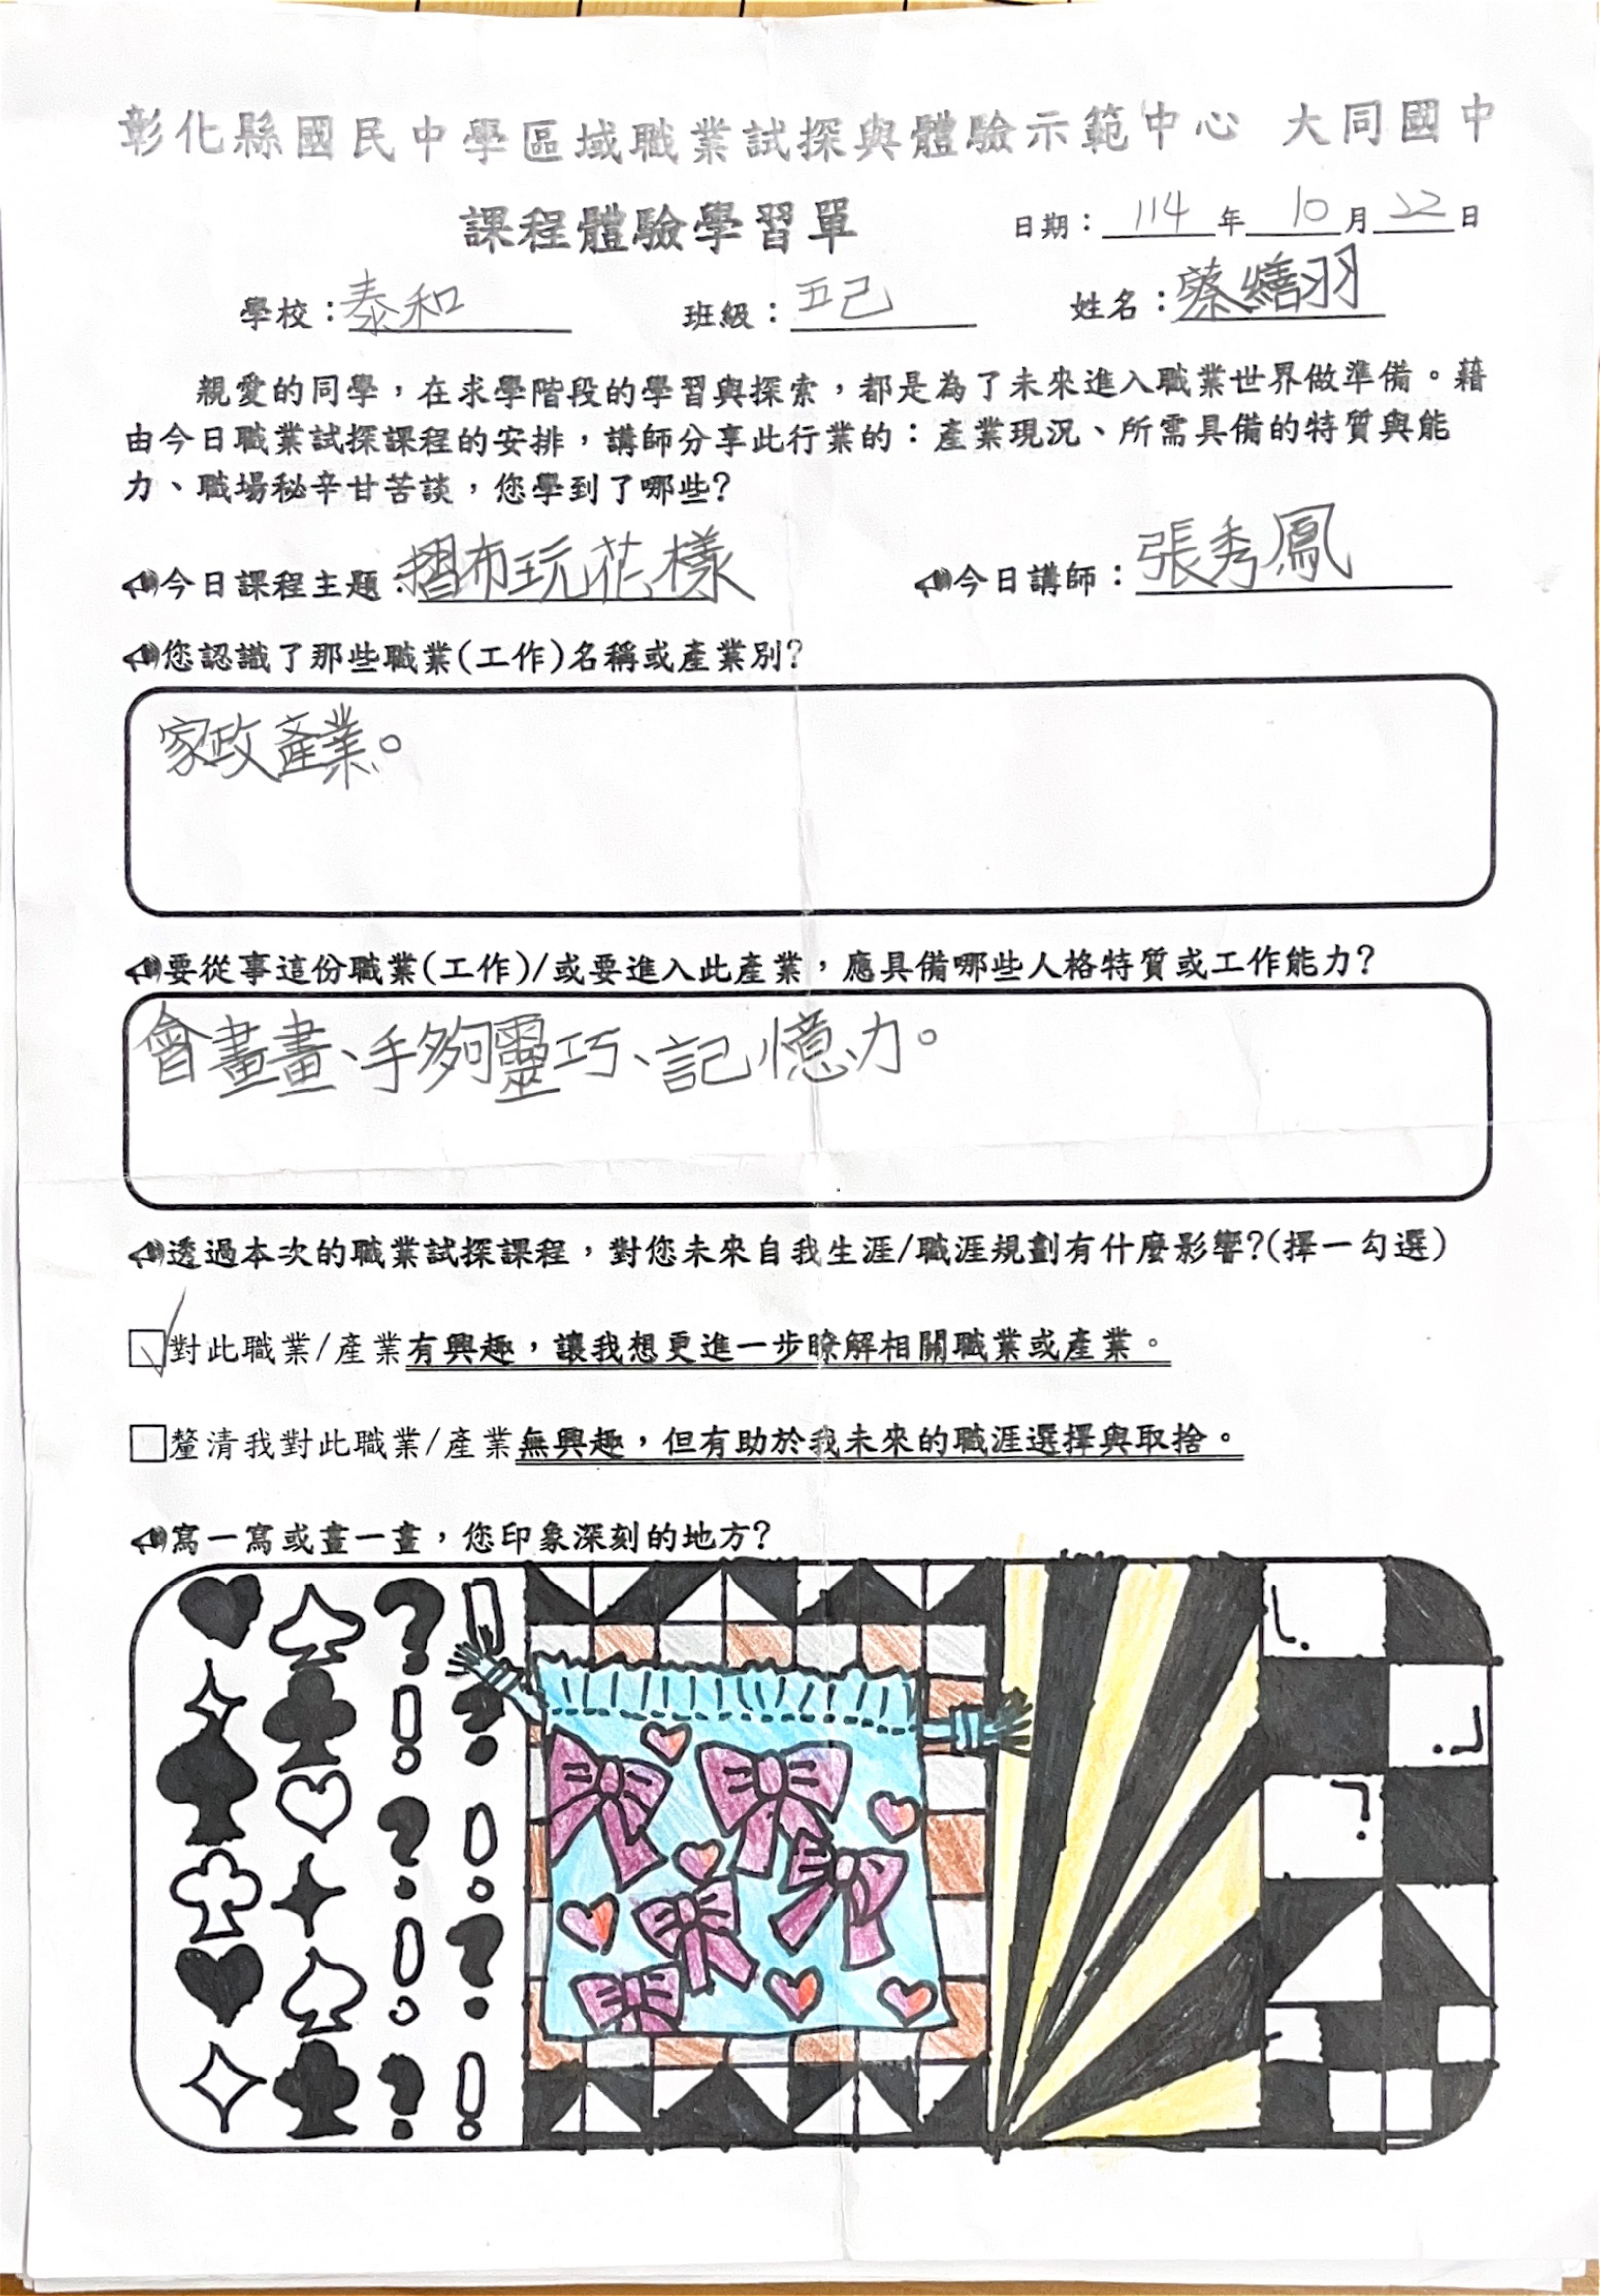 彰化縣國民中學區域職業試探與體驗示範中心 大同國中
課程體驗學習單 日期：114年10月22日
學校：泰和 班級：五己 姓名：蔡繕羽
親愛的同學，在求學階段的學習與探索，都是為了未來進入職業世界做準備。藉
由今日職業試探課程的安排，講師分享此行業的：產業現況、所需具備的特質與能
力、職場秘辛甘苦談，您學到了哪些?
今日課程主題：摺布玩花樣 今日講師：張秀鳳
您認識了那些職業(工作)名稱或產業別?
家政產業。
要從事這份職業(工作)/或要進入此產業，應具備哪些人格特質或工作能力?
會畫畫、手夠靈巧、記憶力。
透過本次的職業試探課程，對您未來自我生涯/職涯規劃有什麼影響?(擇一勾選)
☑對此職業/產業有興趣，讓我想更進一步瞭解相關職業或產業。
□釐清我對此職業/產業無興趣，但有助於我未來的職涯選擇與取捨。
寫一寫或畫一畫，您印象深刻的地方?